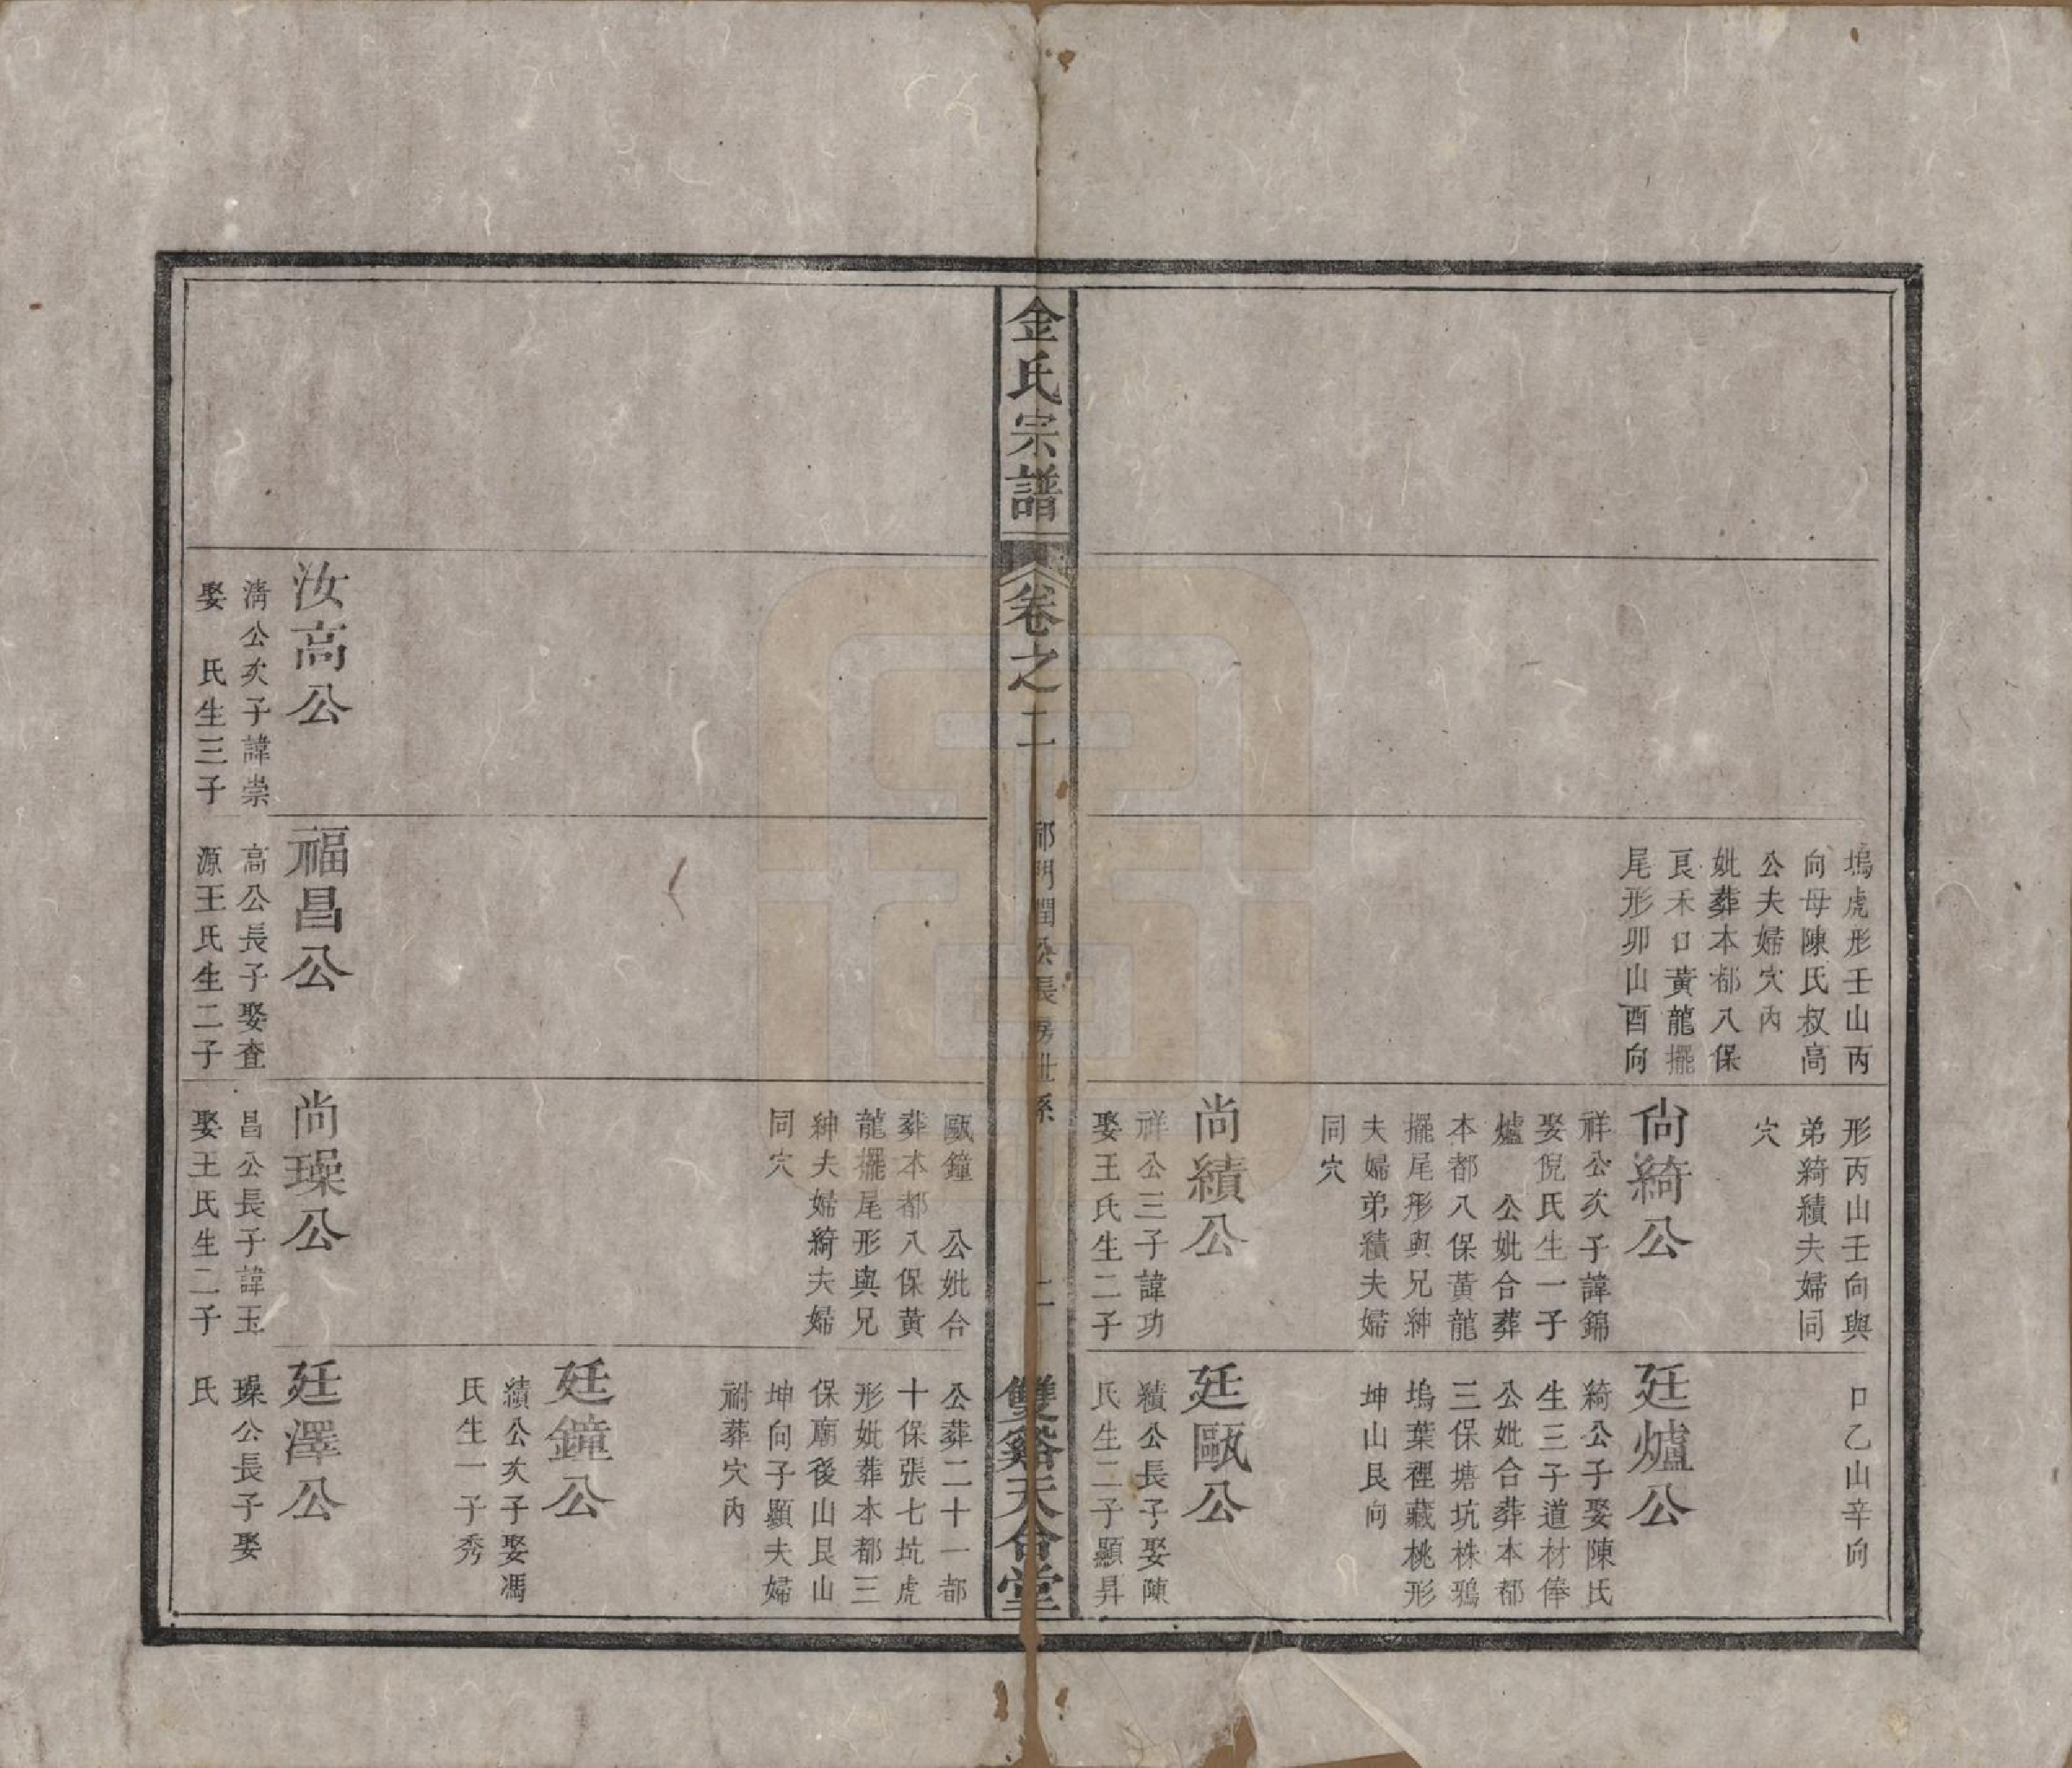 塢虎形壬山丙
向母陳氏叔高
公夫婦穴內
妣葬本都八保
艮禾口黃龍擺
尾形卯山酉向
形丙山壬向與
弟綺績夫婦同
穴
尚綺公
祥公次子諱錦
娶倪氏生一子
爐　公妣合葬
本都八保黃龍
擺尾形與兄紳
夫婦弟績夫婦
同穴
尚績公
祥公三子諱功
娶王氏生二子
口乙山辛向
廷爐公
綺公子娶陳氏
生三子道材俸
公妣合葬本都
三保塘坑株鴉
塢葉裡藏桃形
坤山艮向
廷甌公
績公長子娶陳
氏生二子顯昇
金氏宗譜
卷之二
祁門潤公長房世系
十一
雙谿天合堂
汝高公
淸公次子諱崇
娶　氏生三子
福昌公
高公長子娶査
源王氏生二子
甌鐘　公妣合
葬本都八保黃
龍擺尾形與兄
紳夫婦綺夫婦
同穴
尚璪公
昌公長子諱玉
娶王氏生二子
公葬二十一都
十保張七坑虎
形妣葬本都三
保廟後山艮山
坤向子顯夫婦
祔葬穴內
廷鐘公
績公次子娶馮
氏生一子秀
廷澤公
璪公長子娶
氏